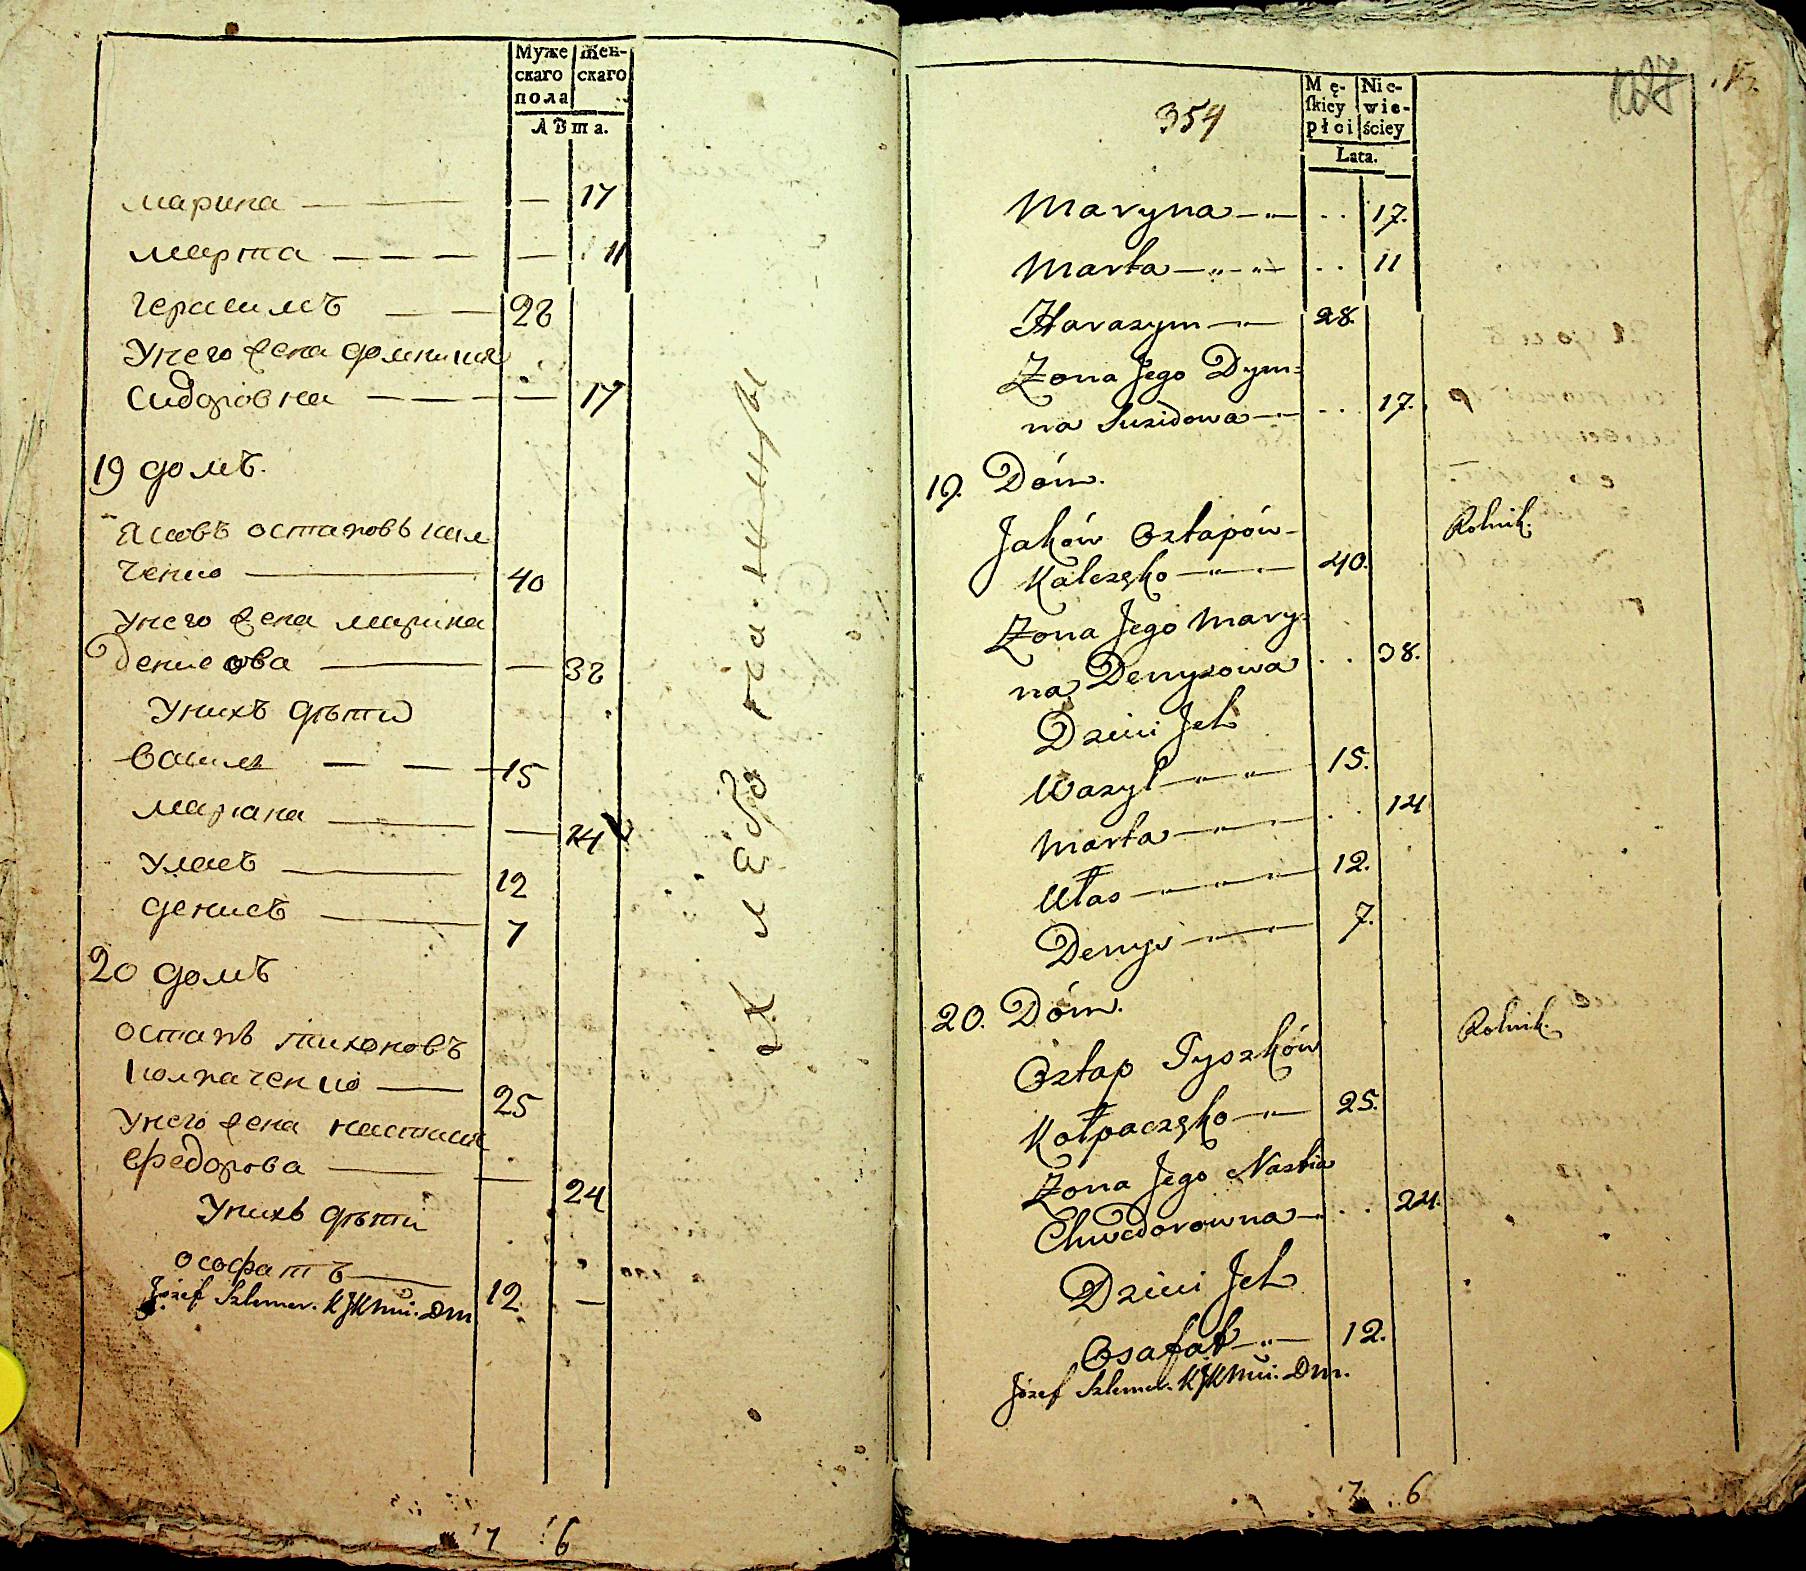 Муже Жен-
скаго скаго
пола
Лѣта.
марина — — — 17
марта — — — — 11
герасимъ — — 28
Унего жена домникия
Сидоровна — — — — 17
19 домъ.
Яковъ остаповъ кил
ченко — 40
Унего жена марина
Денисова — — 38
Унихъ дѣти
Василь — — — 15
мариана — — 14
Уласъ — 12
денисъ — 7
20 домъ
остапъ тихоновъ
колпаченко — 25
Унего жена настасия
Федорова — — 24
Унихъ дѣти
осафатъ — 12 —
Józef Szlemer. KJKMci. Dm
17 16
Хлѣбопашци
127
354
Mę- Nie-
skiey wie-
płci ściey
Lata.
Maryna — „ — . . 17.
Marta — „ — „ — . . 11
Harasym — „ — 28.
Żona Jego Dym=
na Suzidowa — „ — . . 17.
19. Dóm.
Jaków Ostapów- Rolnik.
Kalczęko — „ — 40.
Żona Jego Mary=
na Denysowa . . 38.
Dzieci Jch
Wasyl — „ — „ — 15.
Marta — „ — „ — . . 14
Ułas — „ — „ — 12.
Denys — „ — „ — 7.
20. Dóm. Rolnik.
Ostap Tyszków
Kołpaczęko — „ — 25.
Żona Jego Nastia
Chwedorowna — . . . 24.
Dzieci Jch
Osafat — „ — 12.
Józef Szlemer. KJKMci. Dm.
7 6